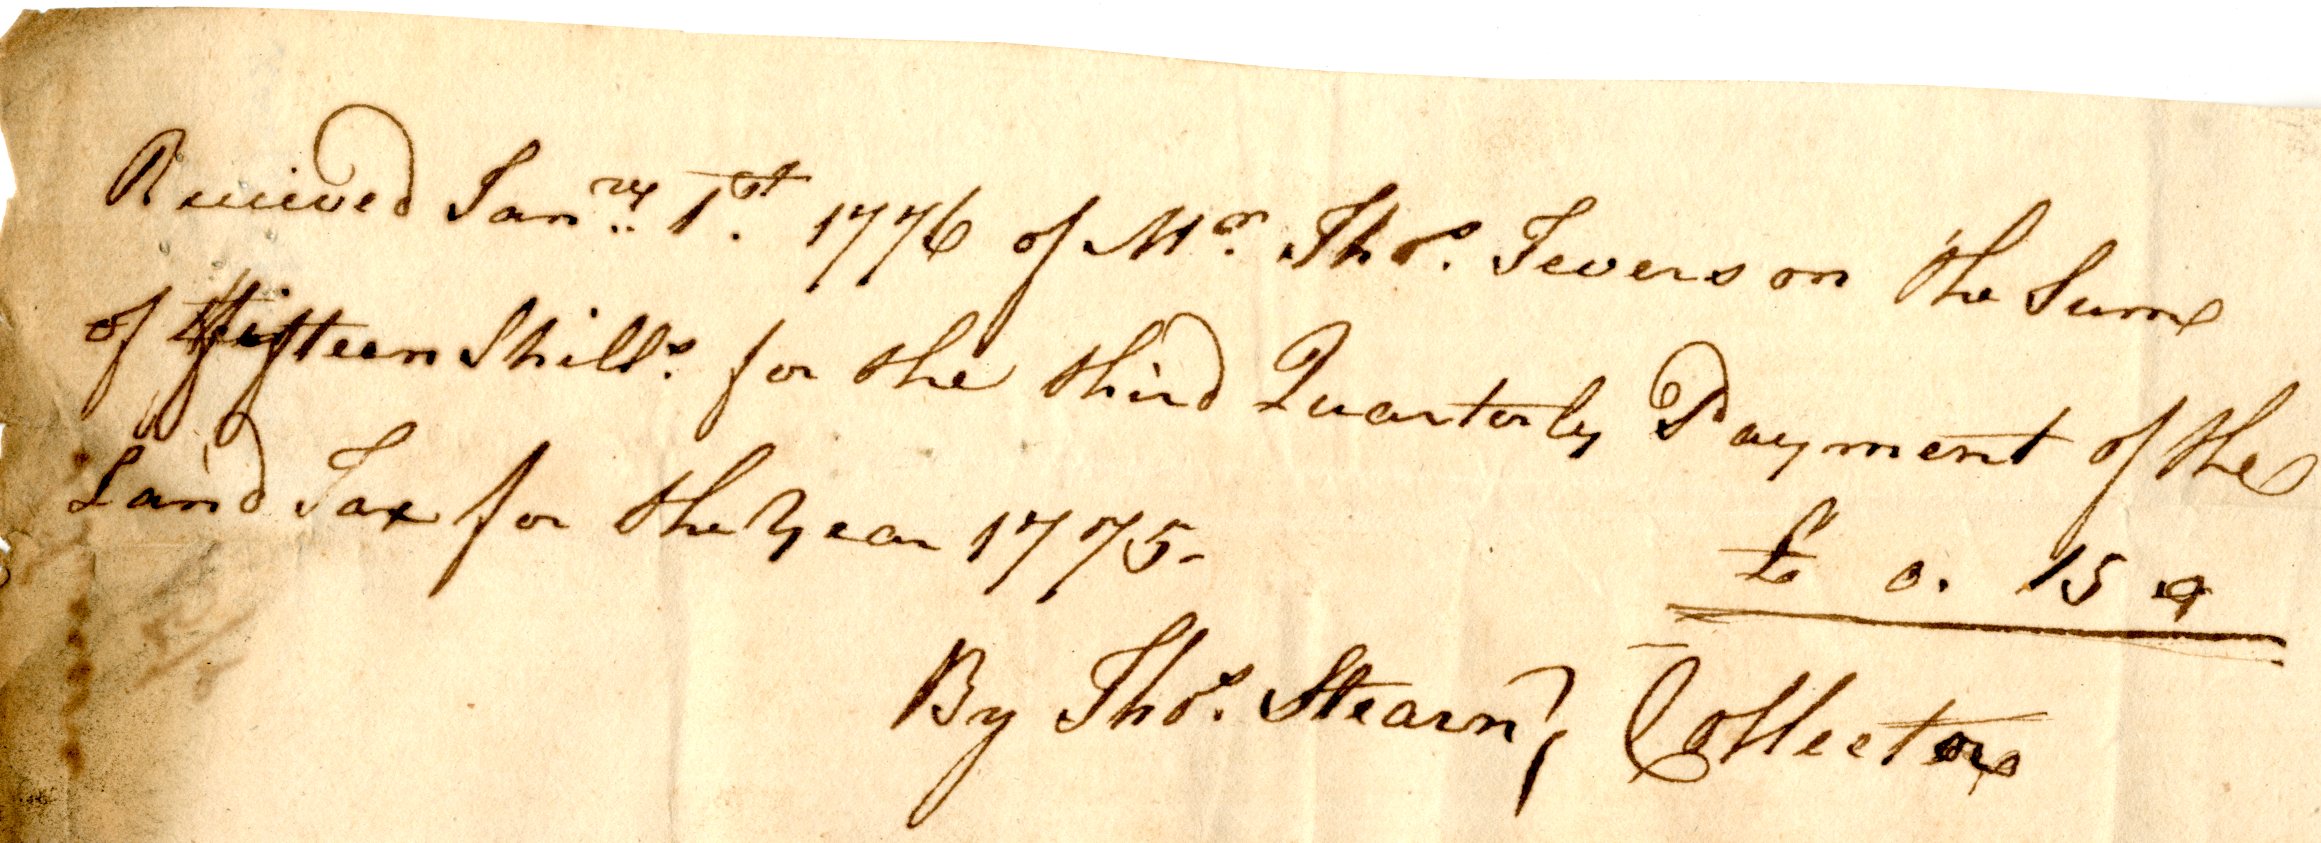 Received Janry. 1st. 1776 of Mr. Thos. Jeverson the Sume
of fifteen Shills. for the third Quarterly Payment of the
Land Tax for the Year 1775-
£ 0. 15 0
By Thos. Stearn, Collector